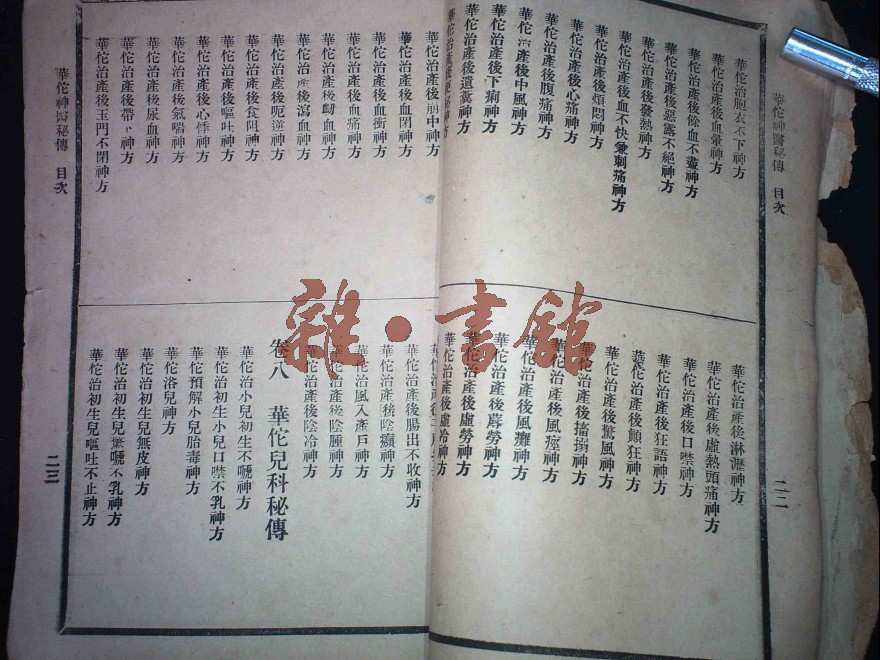 華佗神醫秘傳 目次
二二
華佗治胞衣不下神方
華佗治產後血暈神方
華佗治產後餘血不盡神方
華佗治產後惡露不絕神方
華佗治產後發熱神方
華佗治產後血不快兼刺痛神方
華佗治產後煩悶神方
華佗治產後心痛神方
華佗治產後腹痛神方
華佗治產後中風神方
華佗治產後下痢神方
華佗治產後遺糞神方
華佗治產後淋瀝神方
華佗治產後虛熱頭痛神方
華佗治產後口噤神方
華佗治產後狂語神方
華佗治產後顛狂神方
華佗治產後驚風神方
華佗治產後搐搦神方
華佗治產後風痙神方
華佗治產後風癱神方
華佗治產後蓐勞神方
華佗治產後虛勞神方
華佗治產後虛冷神方
華佗治產後崩中神方
華佗治產後血閉神方
華佗治產後血衝神方
華佗治產後血痛神方
華佗治產後衄血神方
華佗治產後瀉血神方
華佗治產後呃逆神方
華佗治產後食阻神方
華佗治產後嘔吐神方
華佗治產後心悸神方
華佗治產後氣喘神方
華佗治產後尿血神方
華佗治產後帶下神方
華佗治產後玉門不閉神方
華佗治產後腸出不收神方
華佗治產後陰癩神方
華佗治風入產戶神方
華佗治產後陰腫神方
華佗治產後陰冷神方
卷八 華佗兒科秘傳
華佗治小兒初生不啼神方
華佗治初生小兒口噤不乳神方
華佗預解小兒胎毒神方
華佗浴兒神方
華佗治初生兒無皮神方
華佗治初生兒驚啼不乳神方
華佗治初生兒嘔吐不止神方
華佗神醫秘傳 目次
二三
雜·書館